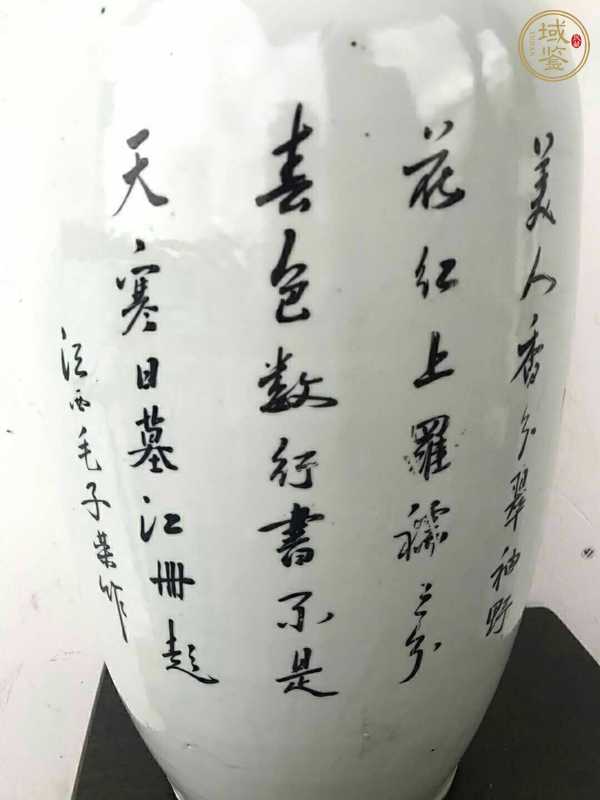 美人香分翠袖野
花红上罗襦三分
春色数行书不是
天寒日暮江册起
江西毛子荣作
域鉴